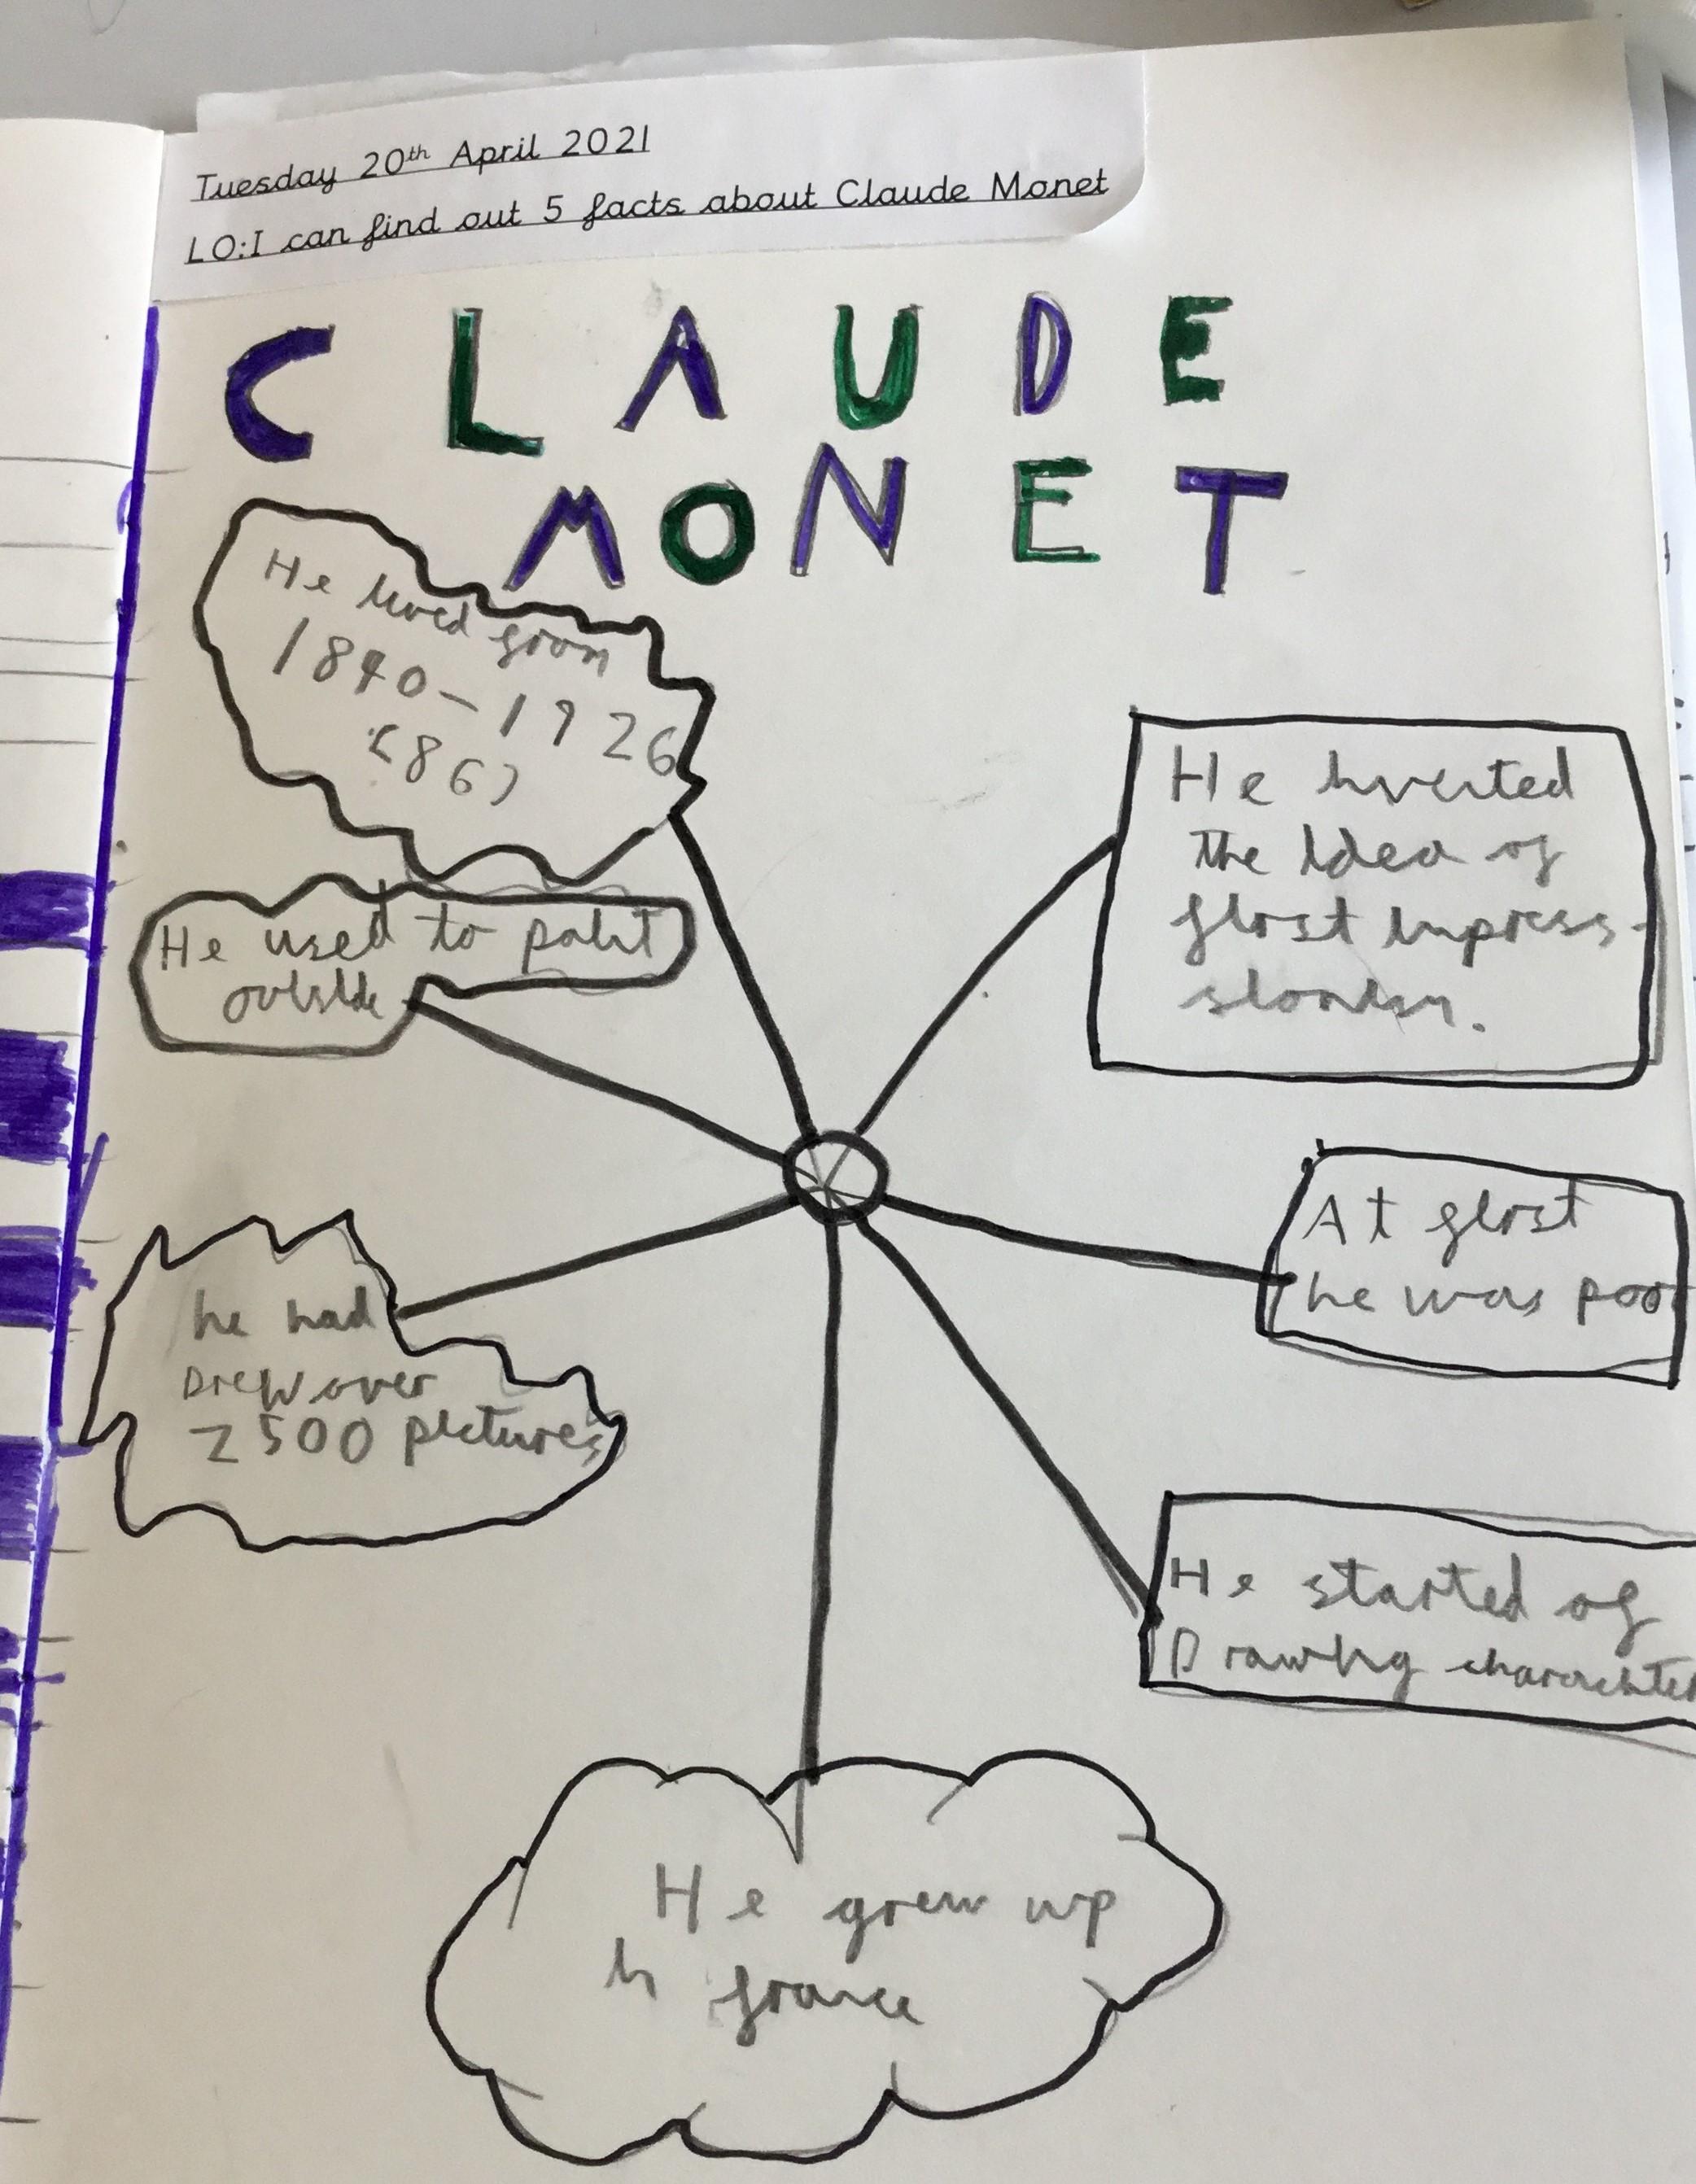 Tuesday 20th April 2021
LO:I can find out 5 facts about Claude Monet
CLAUDE
MONET
He lived from
1840-1926
(86)
He used to paint
outside
he had
Drew over
2500 pictures
He invented
the idea of
first impress-
sionism.
At first
he was poor
He started of
Drawing charachter
He grew up
in france